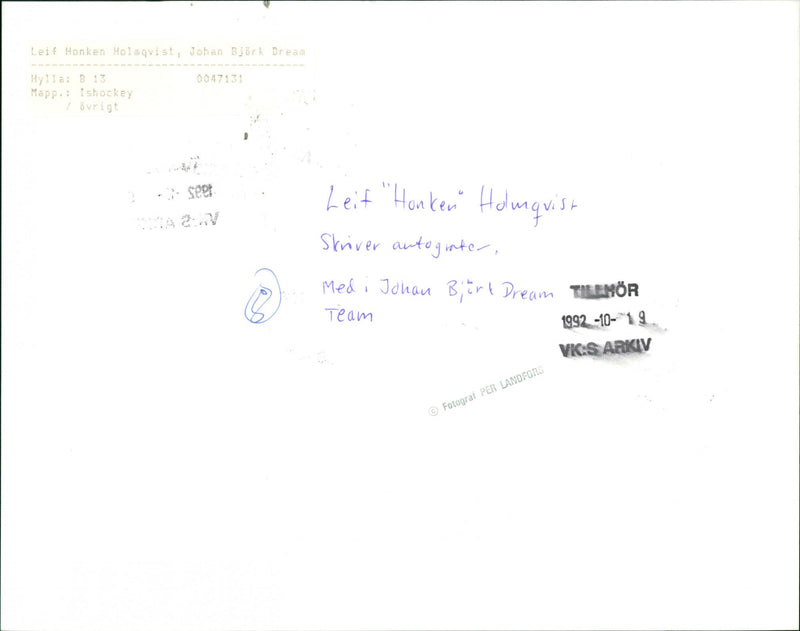 Leif Honken Holmqvist, Johan Björk Dream
Hylla: B 13 0047131
Mapp.: Ishockey
/ övrigt
Leif "Honken" Holmqvist
Skriver autografer.
Med i Johan Björk Dream
Team
TILLHÖR
1992 -10- 19
VK:S ARKIV
© Fotograf PER LANDFORS